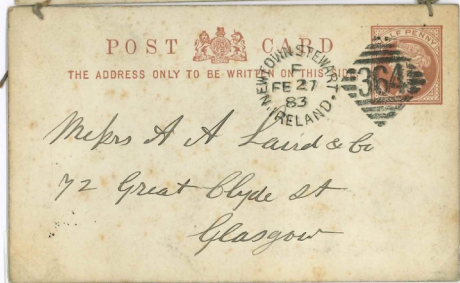 POST CARD
THE ADDRESS ONLY TO BE WRITTEN ON THIS SIDE
HALF PENNY
NEWTOWNSTEWART
F
FE 27
83
IRELAND
364
Messrs A A Laird & Co
72 Great Clyde St
Glasgow